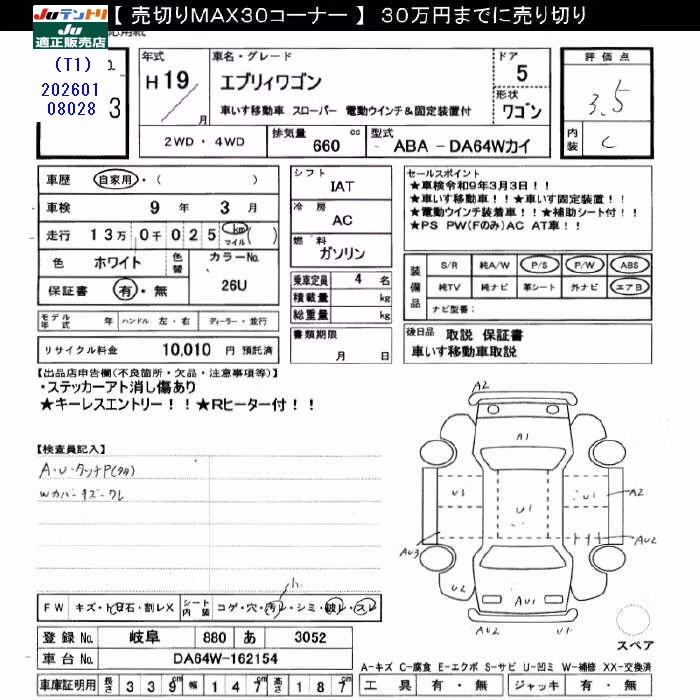 JUテントリ
JU適正販売店
【 売切りMAX30コーナー 】 30万円までに売り切り
(T1)
202601
08028
3
年式
H 19 月
車名・グレード
エブリィワゴン
車いす移動車 スローパー 電動ウインチ&固定装置付
ドア
5
形状
ワゴン
評価点
3.5
内装
C
2WD・4WD
排気量
660 cc
型式
ABA - DA64Wカイ
車歴 自家用・( )
車検 9 年 3 月
走行 13万 0千 0 2 5 km マイル ( )
色 ホワイト
色替
カラーNo.
26U
保証書 有・無
シフト
IAT
冷房
AC
燃料
ガソリン
乗車定員 4 名
積載量 kg
総重量 kg
セールスポイント
★車検令和9年3月3日!!
★車いす移動車!!★車いす固定装置!!
★電動ウインチ装着車!!★補助シート付!!
★PS PW(Fのみ)AC AT車!!
装備品
S/R 純A/W P/S P/W ABS
純TV 純ナビ 革シート 外ナビ エアB
ナビ型番:
モデル年式 年 ハンドル 左・右 ディーラー・並行
書類期限
月 日
後日品 取説 保証書
車いす移動車取説
リサイクル料金 10,010 円 預託済
【出品店申告欄(不良箇所・欠品・注意事項等)】
・ステッカーアト消し傷あり
★キーレスエントリー!!★Rヒーター付!!
【検査員記入】
A・U・タッチP(タタ)
Wカバーキズ・ワレ
A2
A1
U1
U1
U1
A2
AU3
AU2
U2
AU1
AU2
U1
スペア
FW キズ・ヒ飛石・割レX
シート内装
コゲ・穴・汚レ・シミ・破レ・スレ
登録No. 岐阜 880 あ 3052
車台No. DA64W-162154
車庫証明用 長さ 339cm 幅 147cm 高さ 187cm
A-キズ C-腐食 E-エクボ S-サビ U-凹ミ W-補修 XX-交換済
工具 有・無 ジャッキ 有・無